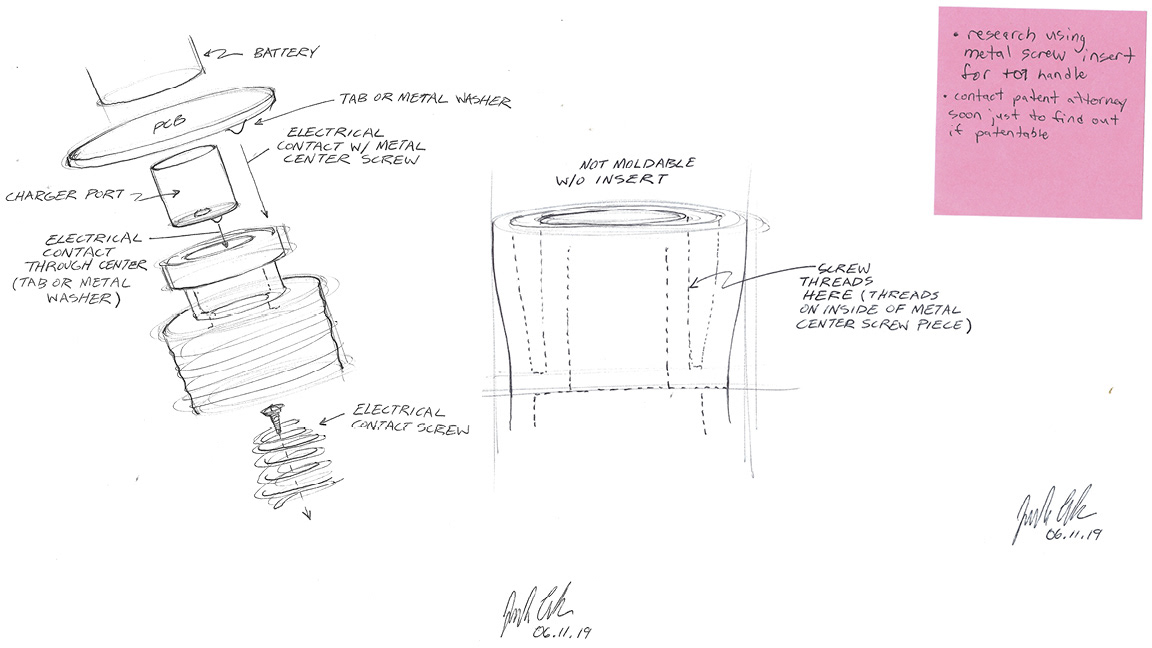 BATTERY
TAB OR METAL WASHER
PCB
ELECTRICAL
CONTACT W/ METAL
CENTER SCREW
CHARGER PORT
ELECTRICAL
CONTACT
THROUGH CENTER
(TAB OR METAL
WASHER)
ELECTRICAL
CONTACT SCREW
NOT MOLDABLE
W/O INSERT
SCREW
THREADS
HERE (THREADS
ON INSIDE OF METAL
CENTER SCREW PIECE)
• research using
metal screw insert
for handle
• contact patent attorney
soon just to find out
if patentable
06.11.19
06.11.19